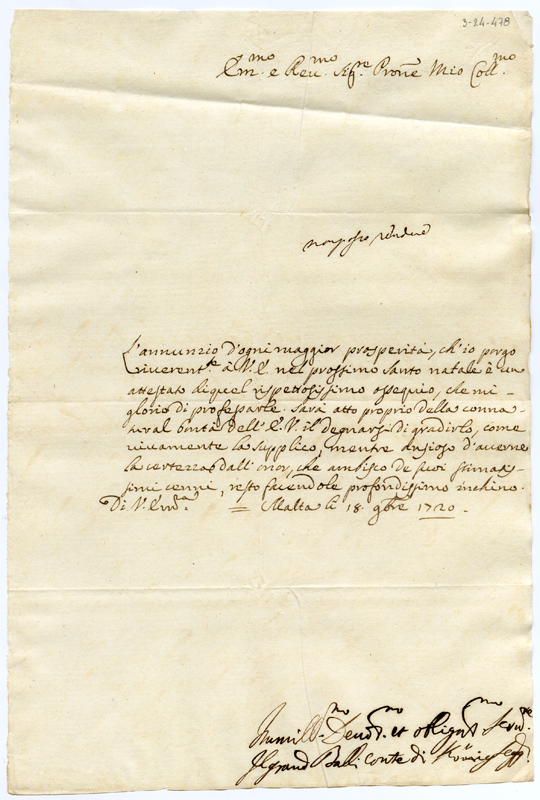 3-24-478
Em.mo e Reu.mo Sig.re Prone Mio Coll.mo
L'annunzio d'ogni maggior prosperità, ch'io porgo
riuerent.te à V.E. nel prossimo santo natale è un
attestato di quel rispettosissimo ossequio, che mi
glorio di professarle. Sarà atto proprio della conna-
tural bontà dell'E.V. il degnarsi di gradirlo, come
viuamente la supplico, mentre ansioso d'auerne
la certezza dall'onor, che ambisco de suoi stimatis-
simi cenni, resto facendole profondissimo inchino.
Di V.Em.za = Malta li 18 9bre 1720.
Humill.mo Deuot.mo et obligat.mo Seru.re
Il Grand Balli conte di Königsegg